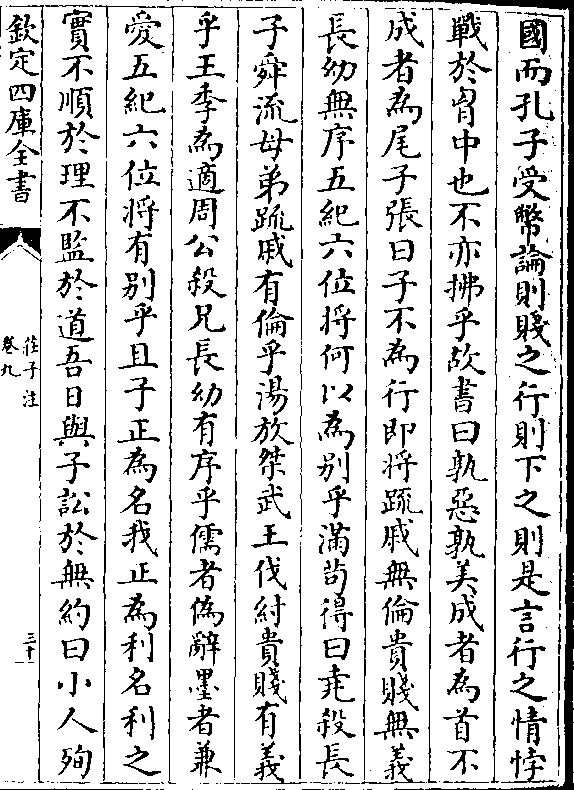 國而孔子受幣論則賤之行則下之則是言行之情悖
戰於胷中也不亦拂乎故書曰孰惡孰美成者為首不
成者為尾子張曰子不為行即將疏戚無倫貴賤無義
長幼無序五紀六位將何以為別乎滿苟得曰堯殺長
子舜流母弟疏戚有倫乎湯放桀武王伐紂貴賤有義
乎王季為適周公殺兄長幼有序乎儒者偽辭墨者兼
愛五紀六位將有别乎且子正為名我正為利名利之
實不順於理不監於道吾日與子訟於無約曰小人殉
欽定四庫全書
莊子注
卷九
三十一